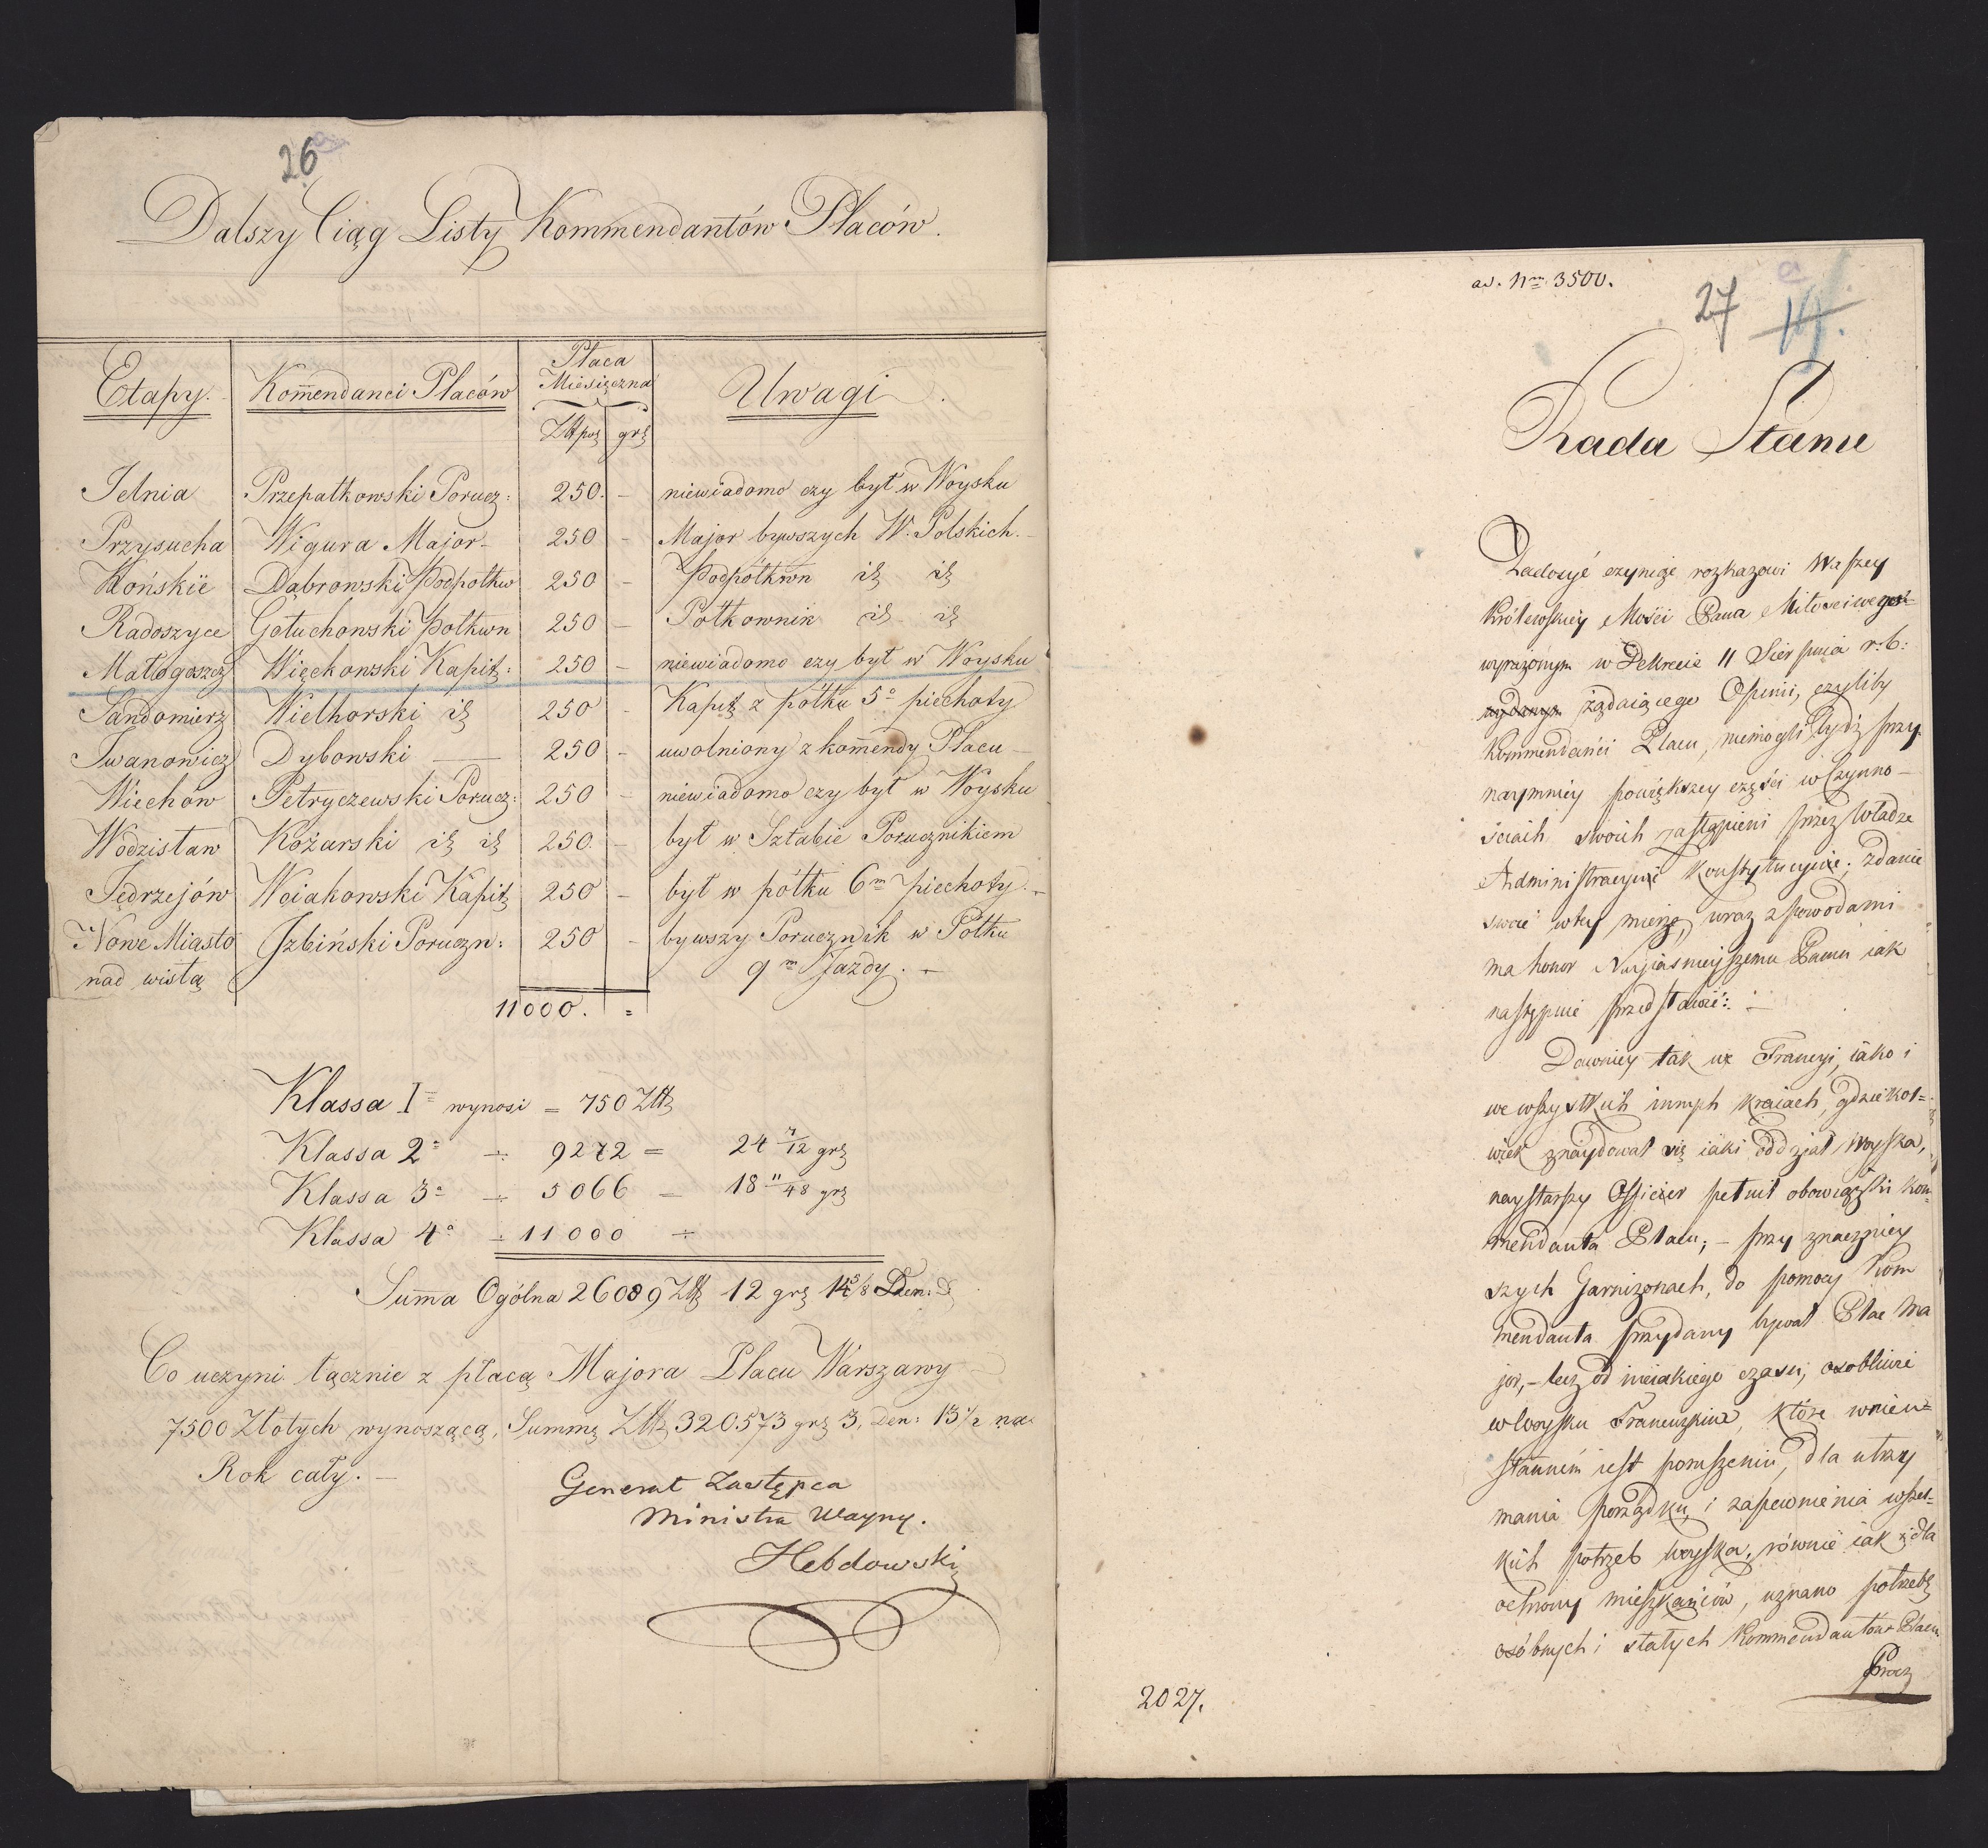 26
Dalszy Ciąg Listy Kommendantów Placów.
Etapy. Kom̄endanci Placów Płaca Miesięczna Uwagi.
Złłpoł grż
Jelnia Przepałkowski Porucz: 250. – niewiadomo czy był w Woysku
Przysucha Wigura Major – 250 – Major bywszych W. Polskich. –
Końskie Dąbrowski Podpołkw 250 – Podpółkwn id id
Radoszyce Gołuchowski Połkwn 250 – Połkownik id id
Małogoszcz Więckowski Kapit: 250 – niewiadomo czy był w Woysku
Sandomierz Wielhorski id 250 – Kapit z półku 5º piechoty
Iwanowicz Dybowski — 250 – uwolniony z kom̄endy Placu –
Miechów Petryczewski Porucz: 250 – niewiadomo czy był w Woysku
Wodzisław Kożarski id id 250. – był w Sztabie Porucznikiem
Jędrzejów Wciakowski Kapit 250 – był w półku 6m piechoty. –
Nowe Miasto Izbiński Poruczn: 250 – bywszy Porucznik w Półku
nad wisłą 9m Jazdy. –
11000. =
Klassa I= wynosi = 750 Złł
Klassa 2= ÷ 9272 = 24 7/12 grż
Klassa 3= ÷ 5066 – 18 11/48 grż
Klassa 4º ÷ 11000 ÷
Sum̄a Ogólna 26089 Złł 12 grż 14 5/8 Den:
Co uczyni łącznie z płacą Majora Placu Warszawy
7500 Złotych wynoszącą, Summę Złł 320.573 grż 3, Den: 13 1/2 na
Rok cały. –
Generał Zastępca
Ministra Woyny.
Hebdowski
ad. Nm 3500.
27 14.
Rada Stanu
Zadosyć czyniąc rozkazowi Waszey
Królewskiey Mości Pana Miłościwego
wyrażonym w Dekrecie 11 Sierpnia r: b:
żądaiącego Opinii, czyliby
Kommendanci Placu, niemogli bydź przy
naymniey powiększey części w Czynno-
ściach swoich zastąpieni przez Władze
Administracyine Konstytucyine; zdanie
swoie w tey mierze, wraz z powodami
ma honor Nayiaśnieyszemu Panu iak
następuie przedstawić: –
Dawniey tak we Francyi, iako i
we wszystkich innych kraiach, gdziekol=
wiek znaydował się iaki oddział Woyska,
naystarszy Officier pełnił obowiązki kom=
mendanta Placu; – przy znaczniey
szych Garnizonach, do pomocy Kom
mendanta przydany bywał Plac Ma
jor, – lecz od nieiakiego czasu, osobliwie
w Woysku Francuzkim, które w nieu=
stanném iest poruszeniu, dla utrzy
mania porządku, i zapewnienia wszel=
kich potrzeb woyska, równie iak i dla
ochrony mieszkańców, uznano potrzebę
osóbnych i stałych Kommendantów Placu.
Przez
2027.